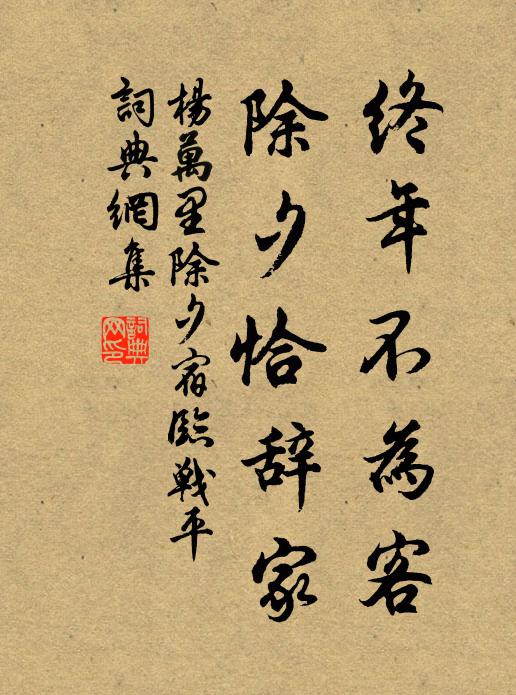 終年不為客
除夕恰辞家
楊萬里除夕宿臨戰平
詞典網集
詞典网印